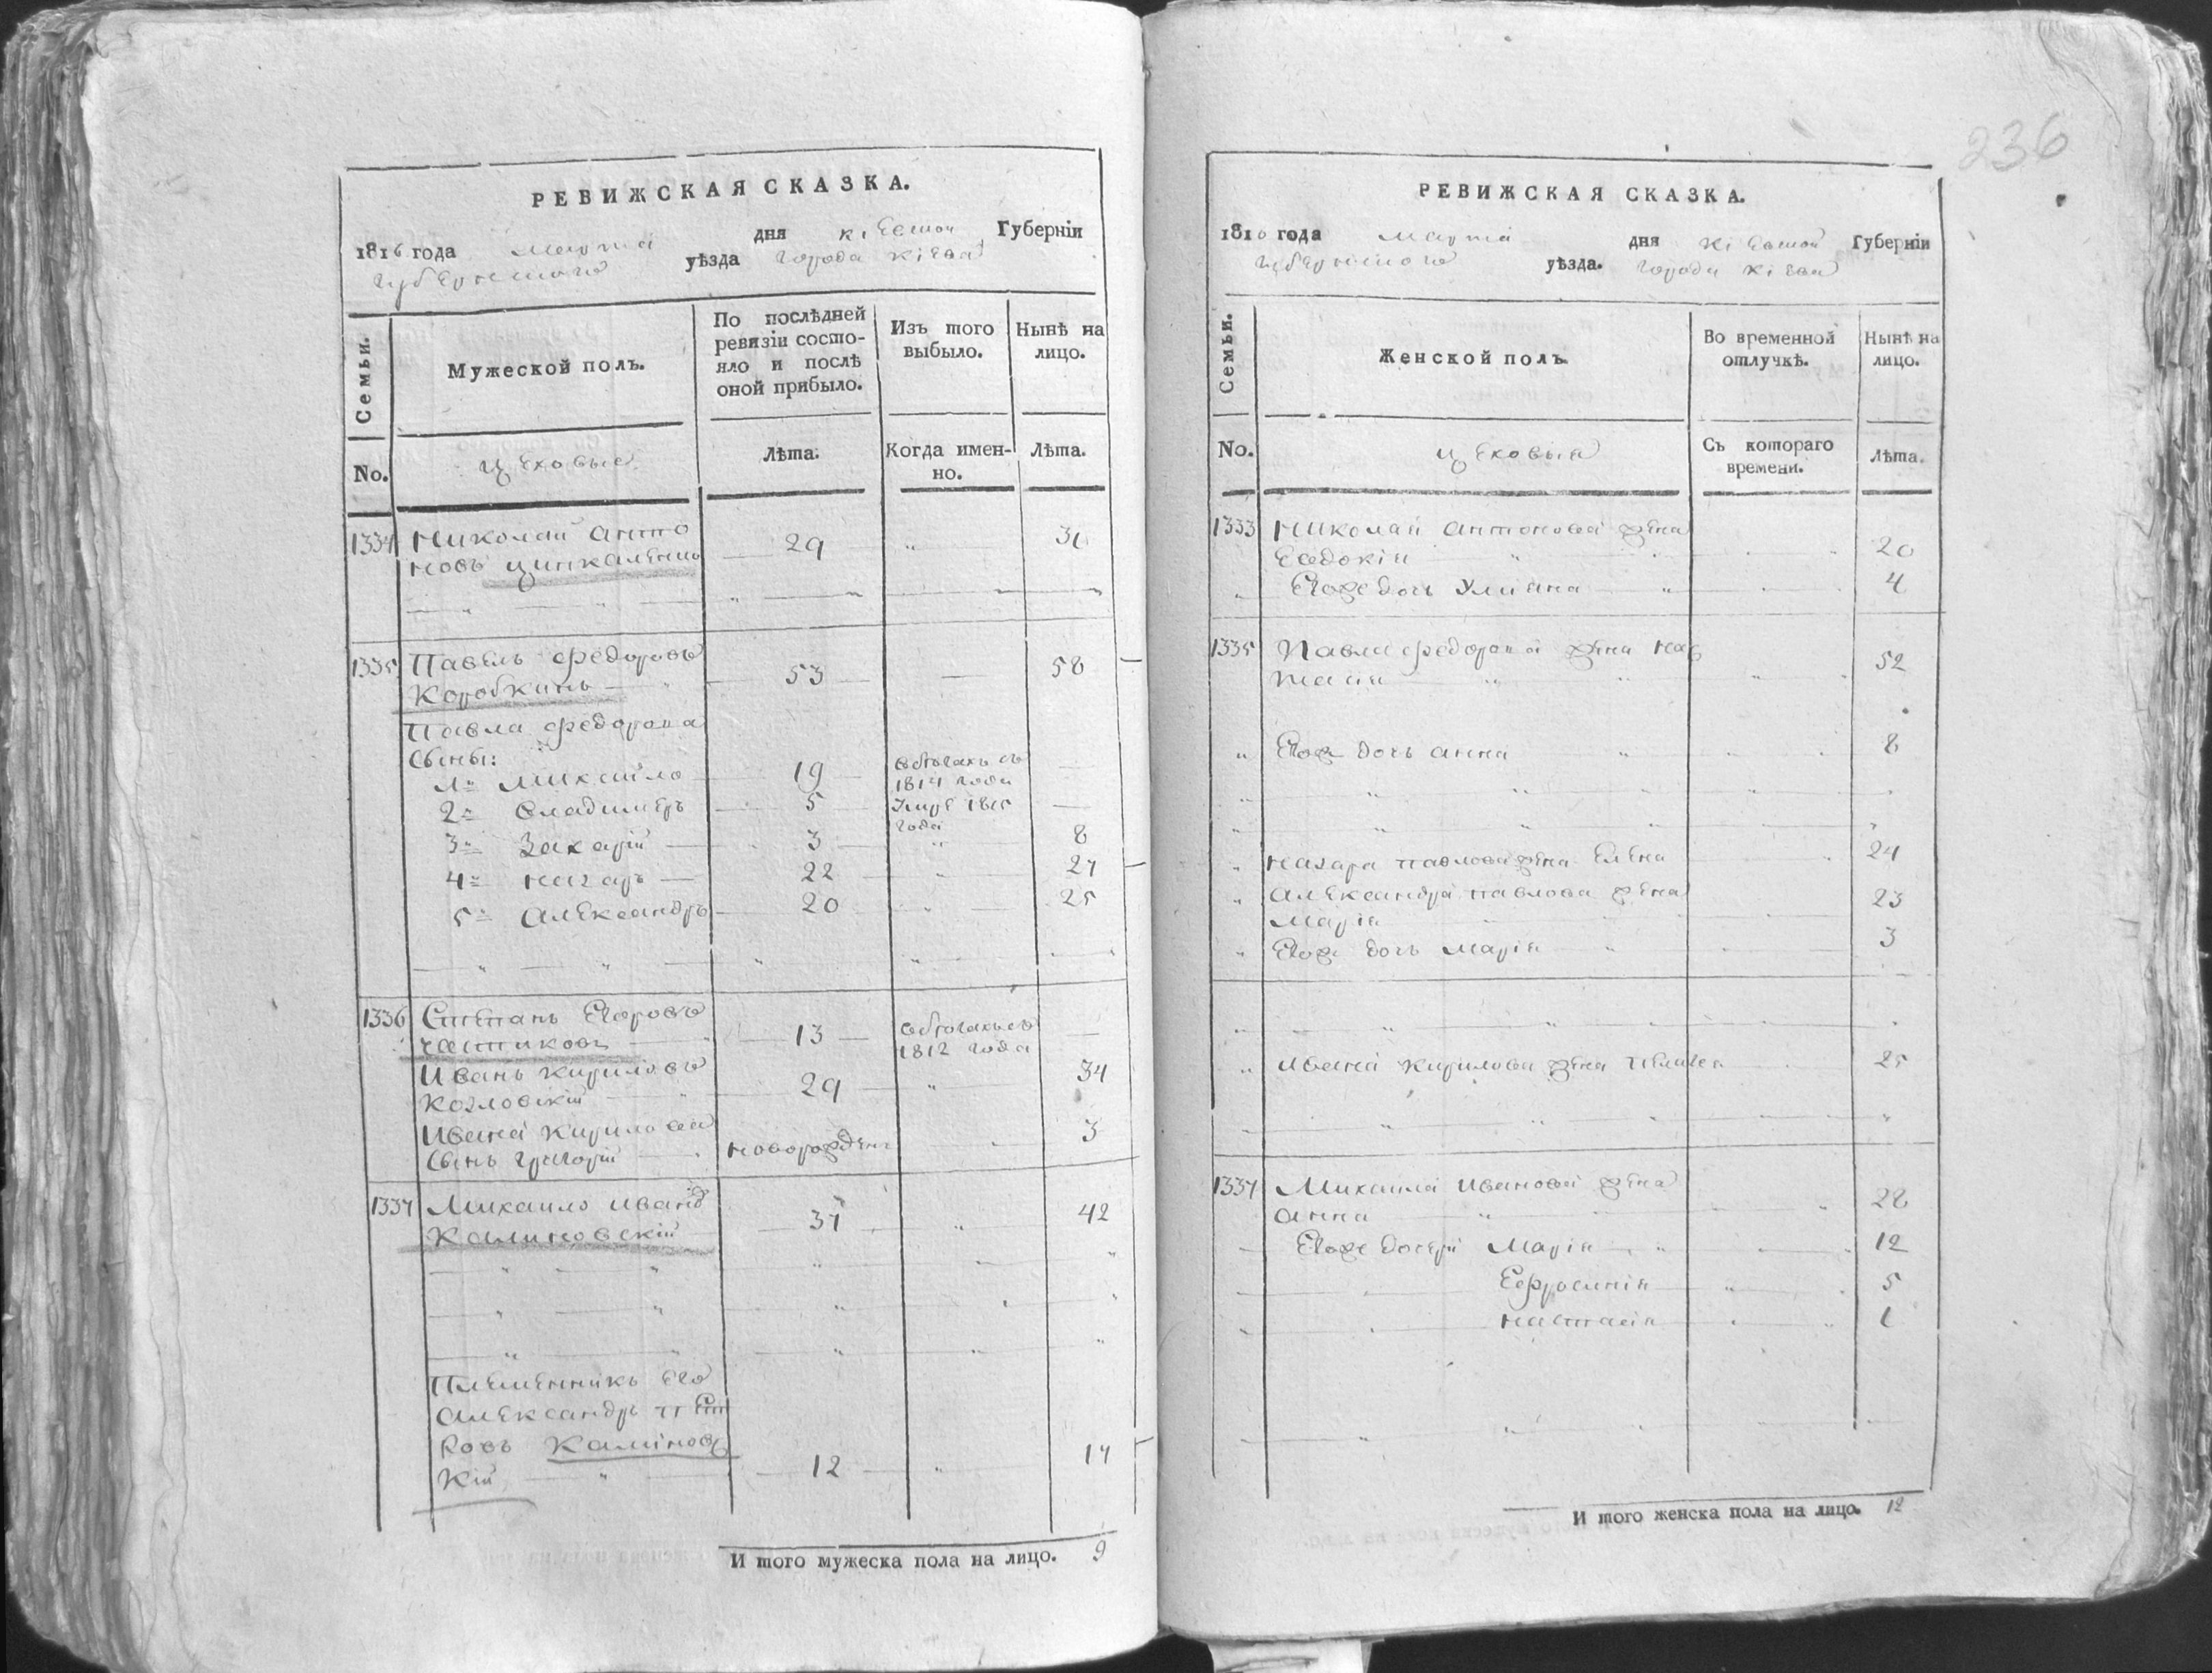 РЕВИЖСКАЯ СКАЗКА.
1816 года марта дня Кіевской Губерніи
губернского уѣзда города Кіева
Семьи.
Мужеской полъ.
По послѣдней ревизіи состо-
яло и послѣ
оной прибыло.
Изъ того
выбыло.
Нынѣ на
лицо.
No.
цеховые
Лѣта.
Когда имен-
но.
Лѣта.
1334 Николай Анто
новъ 29
1335 Павелъ Федоровъ
Коробкинъ 53 58
Павла Федорова
сыны:
1й Михайло 19 въ бѣгахъ съ
1814 года
2й Владимеръ 5 Умре 1815
года
3й Захарій 3 8
4й Назаръ 22 27
5й Александръ 20 25
1336 Степанъ Егоровъ
13 въ бѣгахъ съ
1812 года
Иванъ Кириловъ
Козловскій 29 34
Ивана Кирилова
сынъ Григорій новорожден 3
1337 Михайло Иванов
Калиновскій 37 42
Племенникъ его
Александръ Пет
ровъ Калиновс
кій 12 17
И того мужеска пола на лицо. 9
236
РЕВИЖСКАЯ СКАЗКА.
1816 года марта дня Кіевской Губерніи
губернского уѣзда. города Кіева
Семьи.
Женской полъ.
Во временной
отлучкѣ.
Нынѣ на
лицо.
No.
цеховыя
Съ котораго
времени.
Лѣта.
1333 Николая Антонова жена
Евдокія 20
Егоже дочь Улияна 4
1335 Павла Федорова жена Нас
тасія 52
Егоже дочь Анна 8
Назара Павлова жена Елена 24
Александра Павлова жена
Марія 23
Егоже дочь Марія 3
Ивана Кирилова жена 25
1337 Михаила Иванова жена
Анна 28
Егоже дочери Марія 12
Ефросинія 5
Настасія 1
И того женска пола на лицо. 12